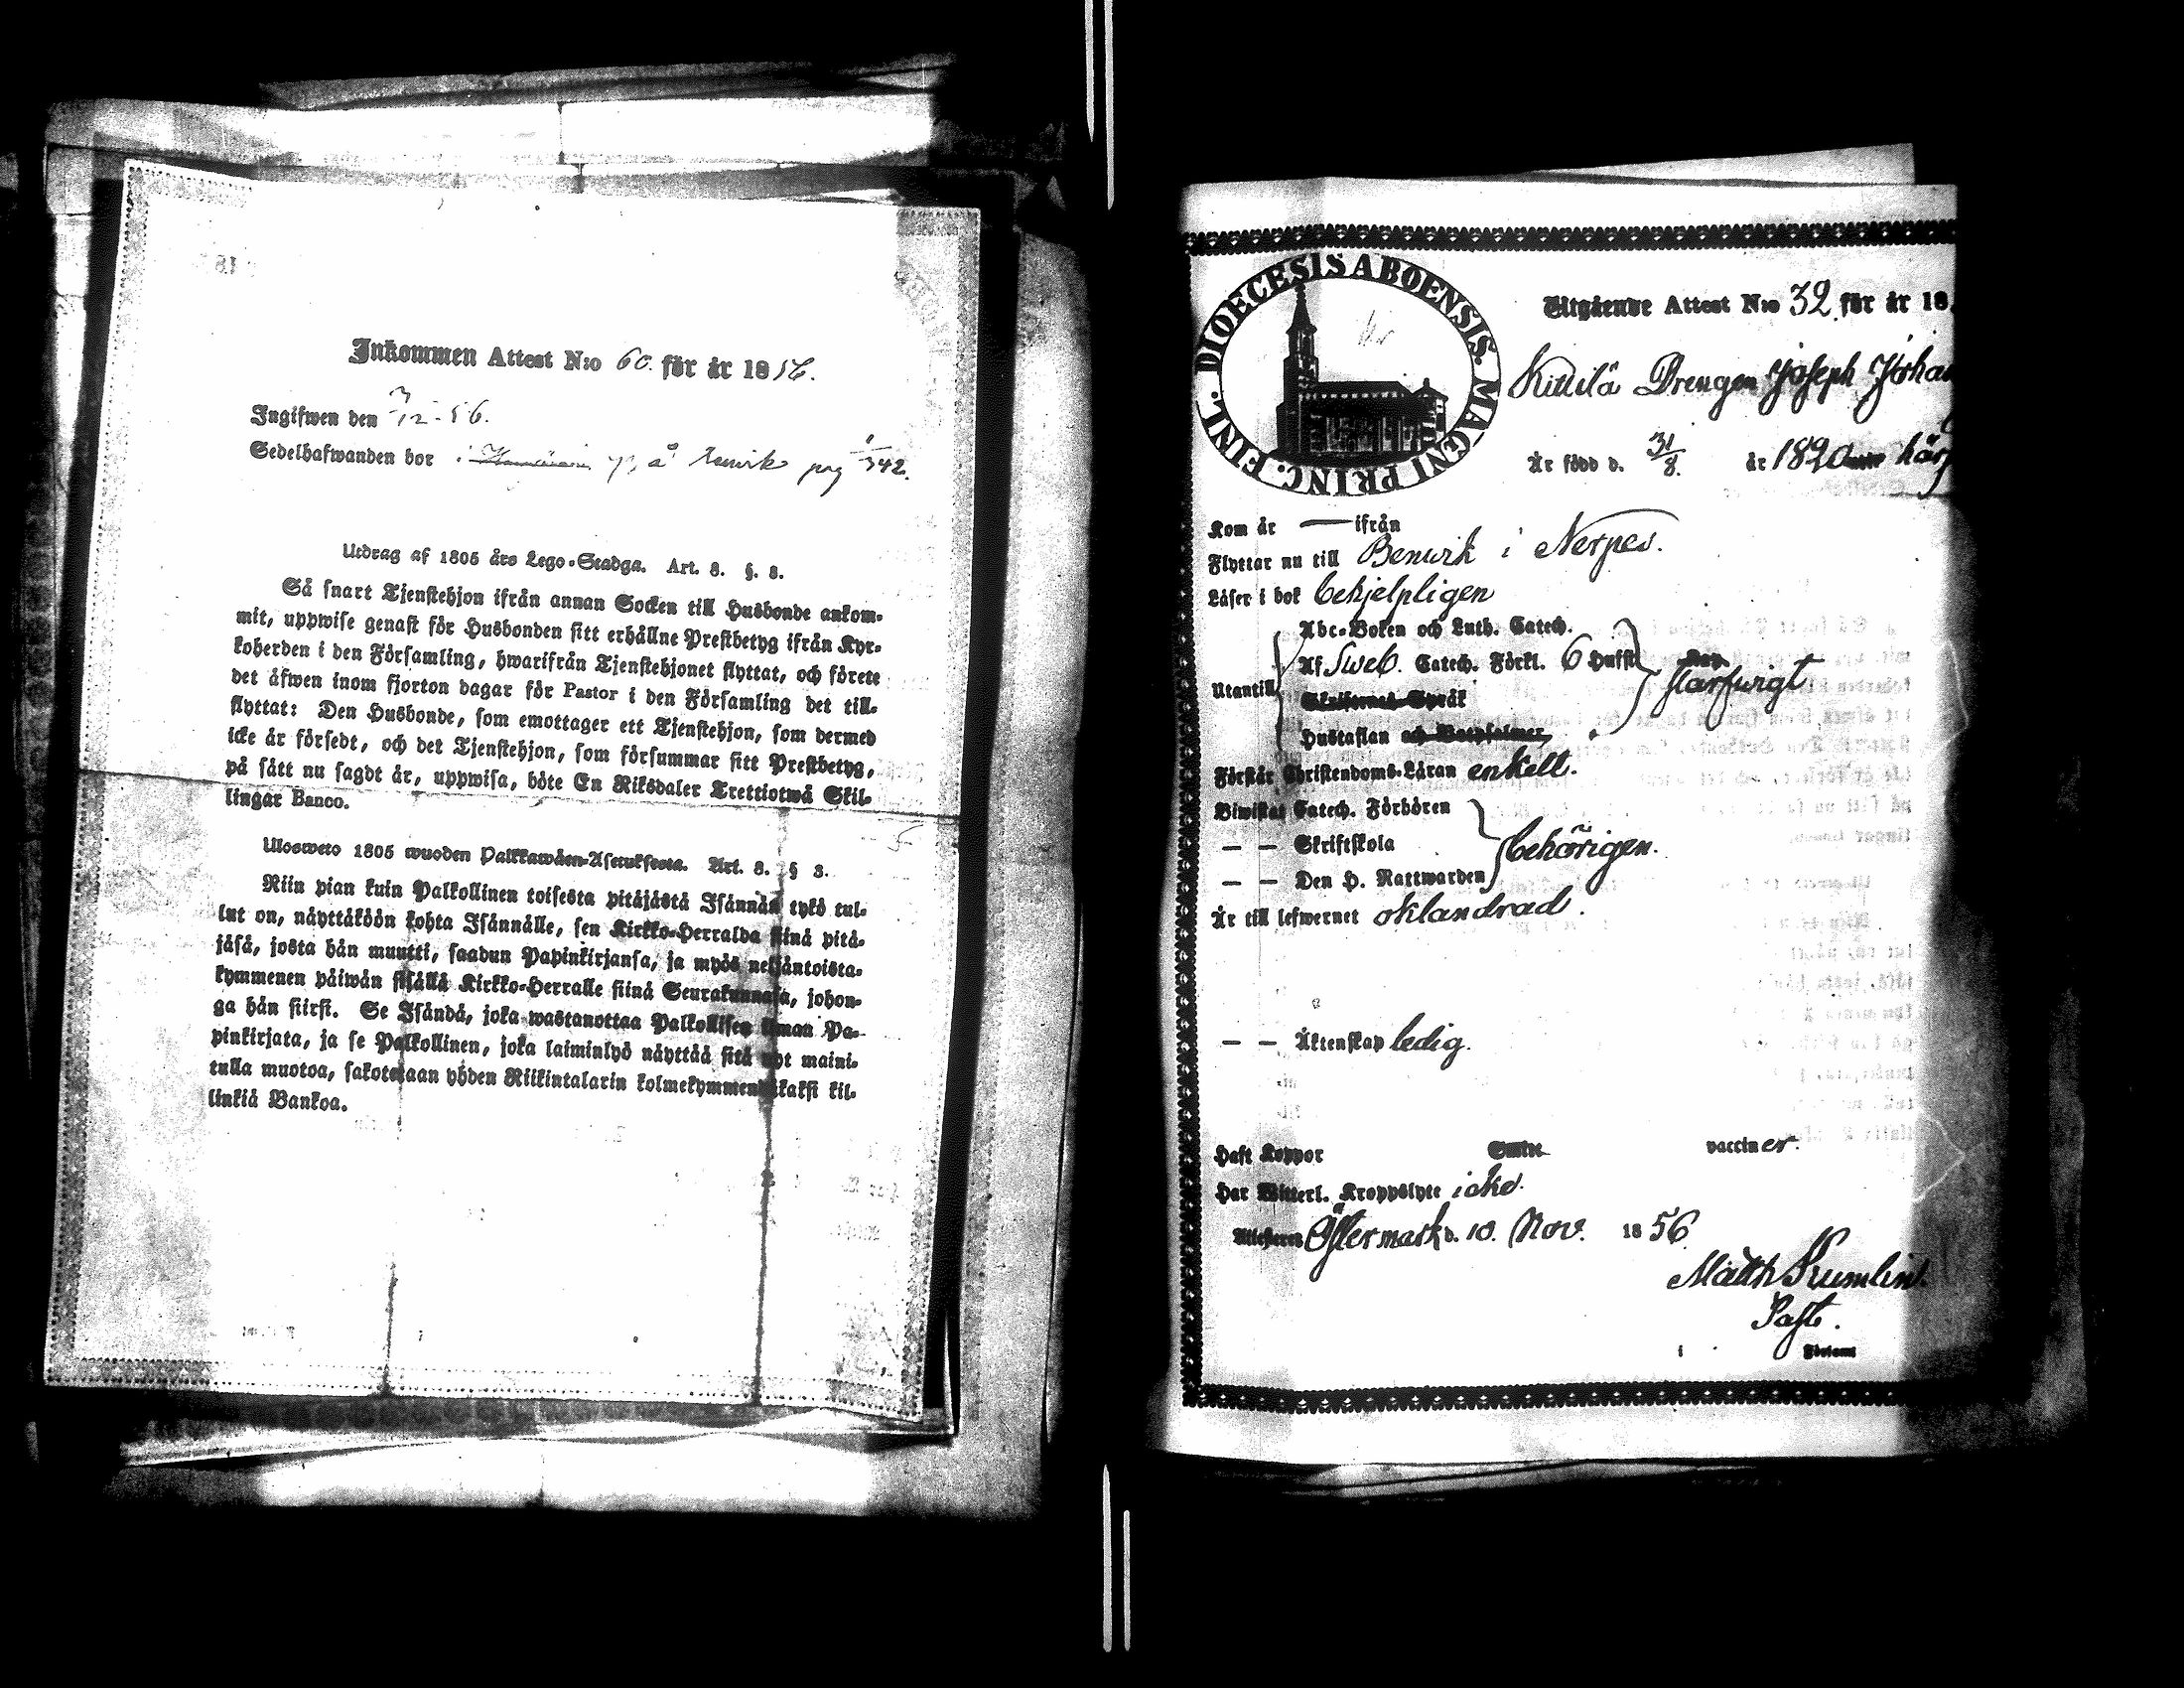 Inkommen Attest N:o 60. för år 1856.
Ingifwen den 7/12 - 56.
Sedelhafwanden bor i på pag 342.
Utdrag af 1805 års Lego-Stadga. Art. 8. §. 8.
Så snart Tjenstehjon ifrån annan Socken till Husbonde ankom-
mit, uppwise genast för Husbonden sitt erhållne Prestbetyg ifrån Kyr-
koherden i den Församling, hwarifrån Tjenstehjonet flyttat, och förete
det äfwen inom fjorton dagar för Pastor i den Församling det till-
flyttat: Den Husbonde, som emottager ett Tjenstehjon, som dermed
icke är försedt, och det Tjenstehjon, som försummar sitt Prestbetyg,
på sätt nu sagdt är, uppwisa, böte En Riksdaler Trettiotwå Skil-
lingar Banco.
Ulosweto 1805 wuoden Palkkawäen-Asetuksesta. Art. 8. § 3.
Niin pian kuin Palkollinen toisesta pitäjästä Isännän tykö tul-
lut on, näyttäköön kohta Isännälle, sen Kirkko-Herralda siinä pitä-
jäsä, josta hän muutti, saadun Papinkirjansa, ja myös neljäntoista-
kymmenen päiwän sisällä Kirkko-Herralle siinä Seurakunnasa, johon-
ga hän siirsi. Se Isändä, joka wastanottaa Palkollisen ilman Pa-
pinkirjata, ja se Palkollinen, joka laiminlyö näyttää sitä nyt maini-
tulla muotoa, sakotetaan yhden Riikintalarin kolmekymmentäkaksi kil-
linkiä Bankoa.
DIOECESIS ABOENSIS. MAGNI PRINC. FINL.
Utgående Attest N:o 32 för år 18
Kittilä Drengen Joseph Johan
Är född d. 31/8. år 1820 härs
Kom år — ifrån
Flyttar nu till Benvik i Nerpes.
Läser i bok behjelpligen
Abc-Boken och Luth. Catech.
Utantill Af Sweb. Catech. Förkl. 6 Hufst
Skrifternes Språk
Hustaflan och Botpsalmer,
Förstår Christendoms-Läran enkelt.
Biwistat Catech. Förhören
— — Skriftskola behörigen.
— — Den H. Nattwarden
Är till lefwernet oklandrad.
— — Äktenskap ledig.
Haft Koppor Smitt vacciner.
Har Witterl. Kroppslyte icke.
Attesteras Östermark d. 10. Nov. 1856
Matth Krumlin.
Past.
i Församl